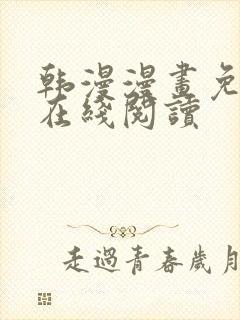 韩漫漫畫免
在綫閱讀
走過青春歲月